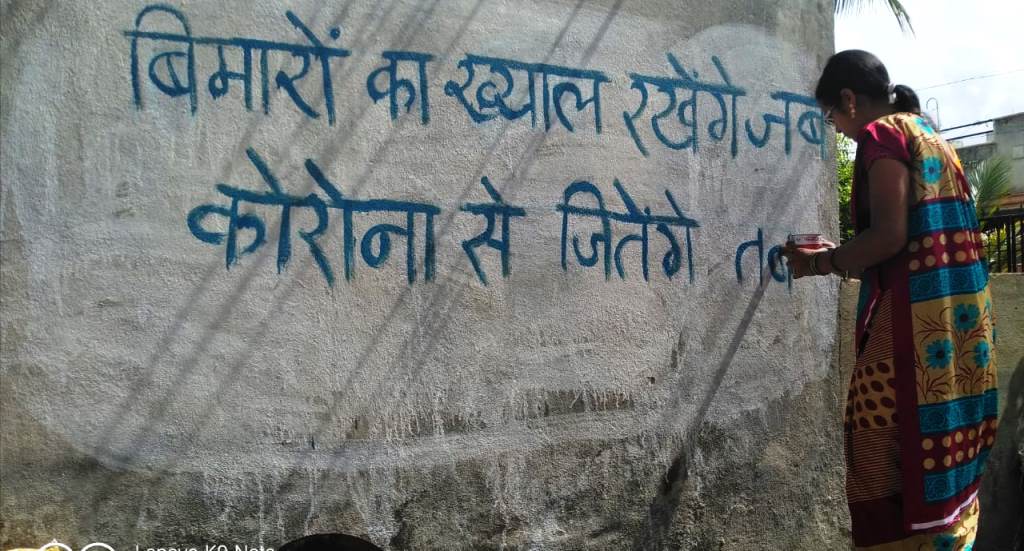 बिमारों का ख्याल रखेंगे जब
कोरोना से जितेंगे तब
Lenovo K9 Note